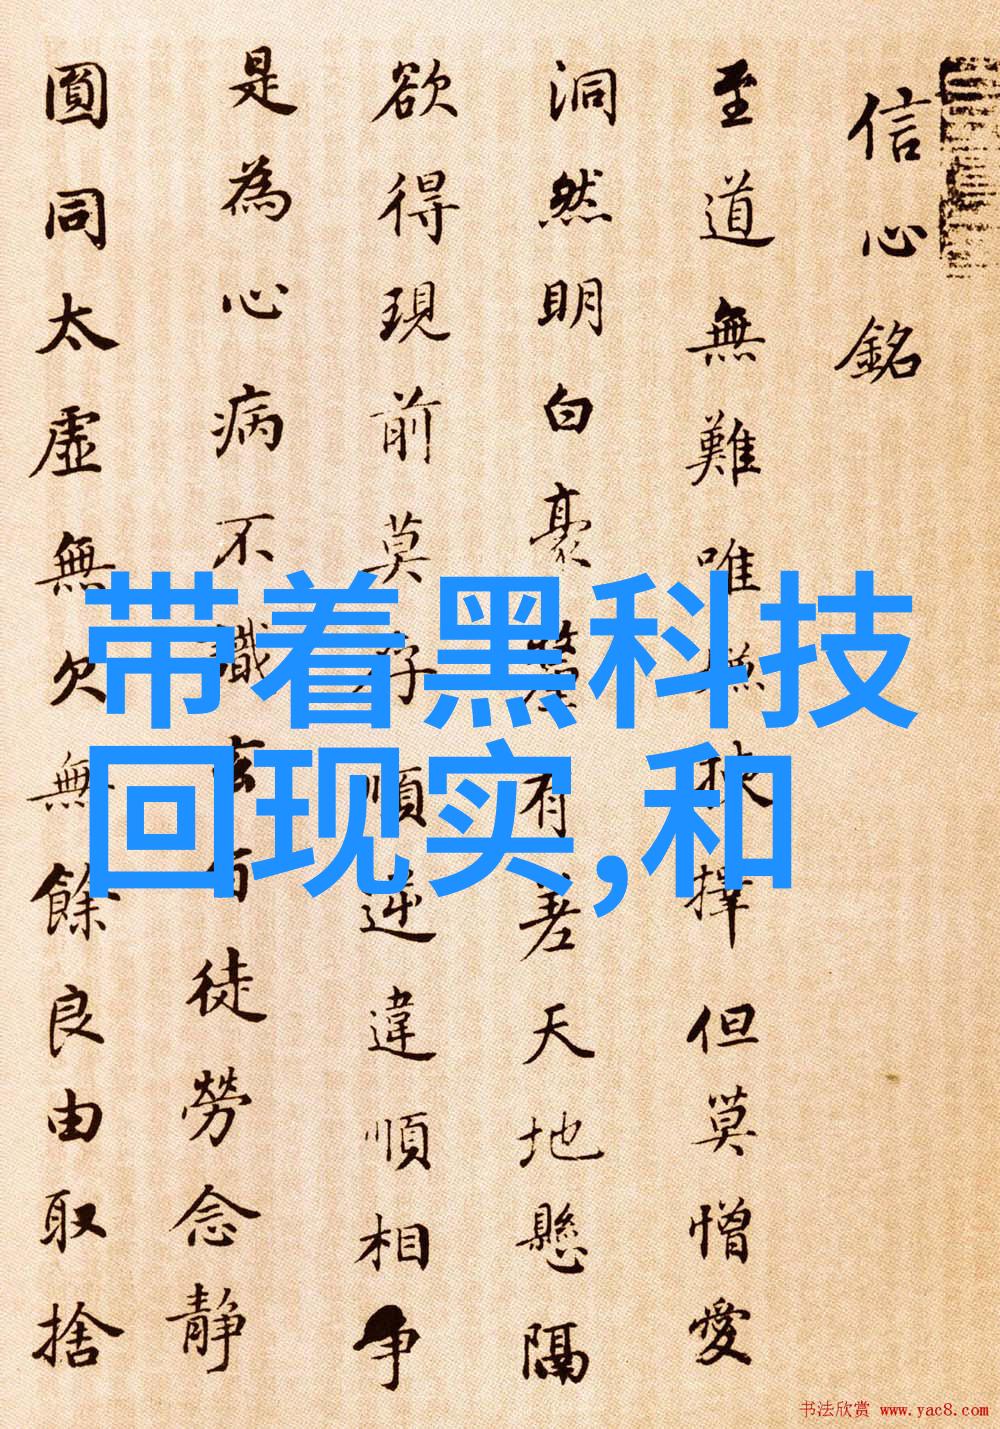 信心銘
至道無難唯擇但莫憎愛
洞然明白豪有差天地懸隔
欲得現前莫存順逆違順相爭
是為心病不識玄旨徒勞念静
圓同太虛無欠無餘良由取捨
带着黑科技
回现实,和
书法欣赏 www.yac8.com